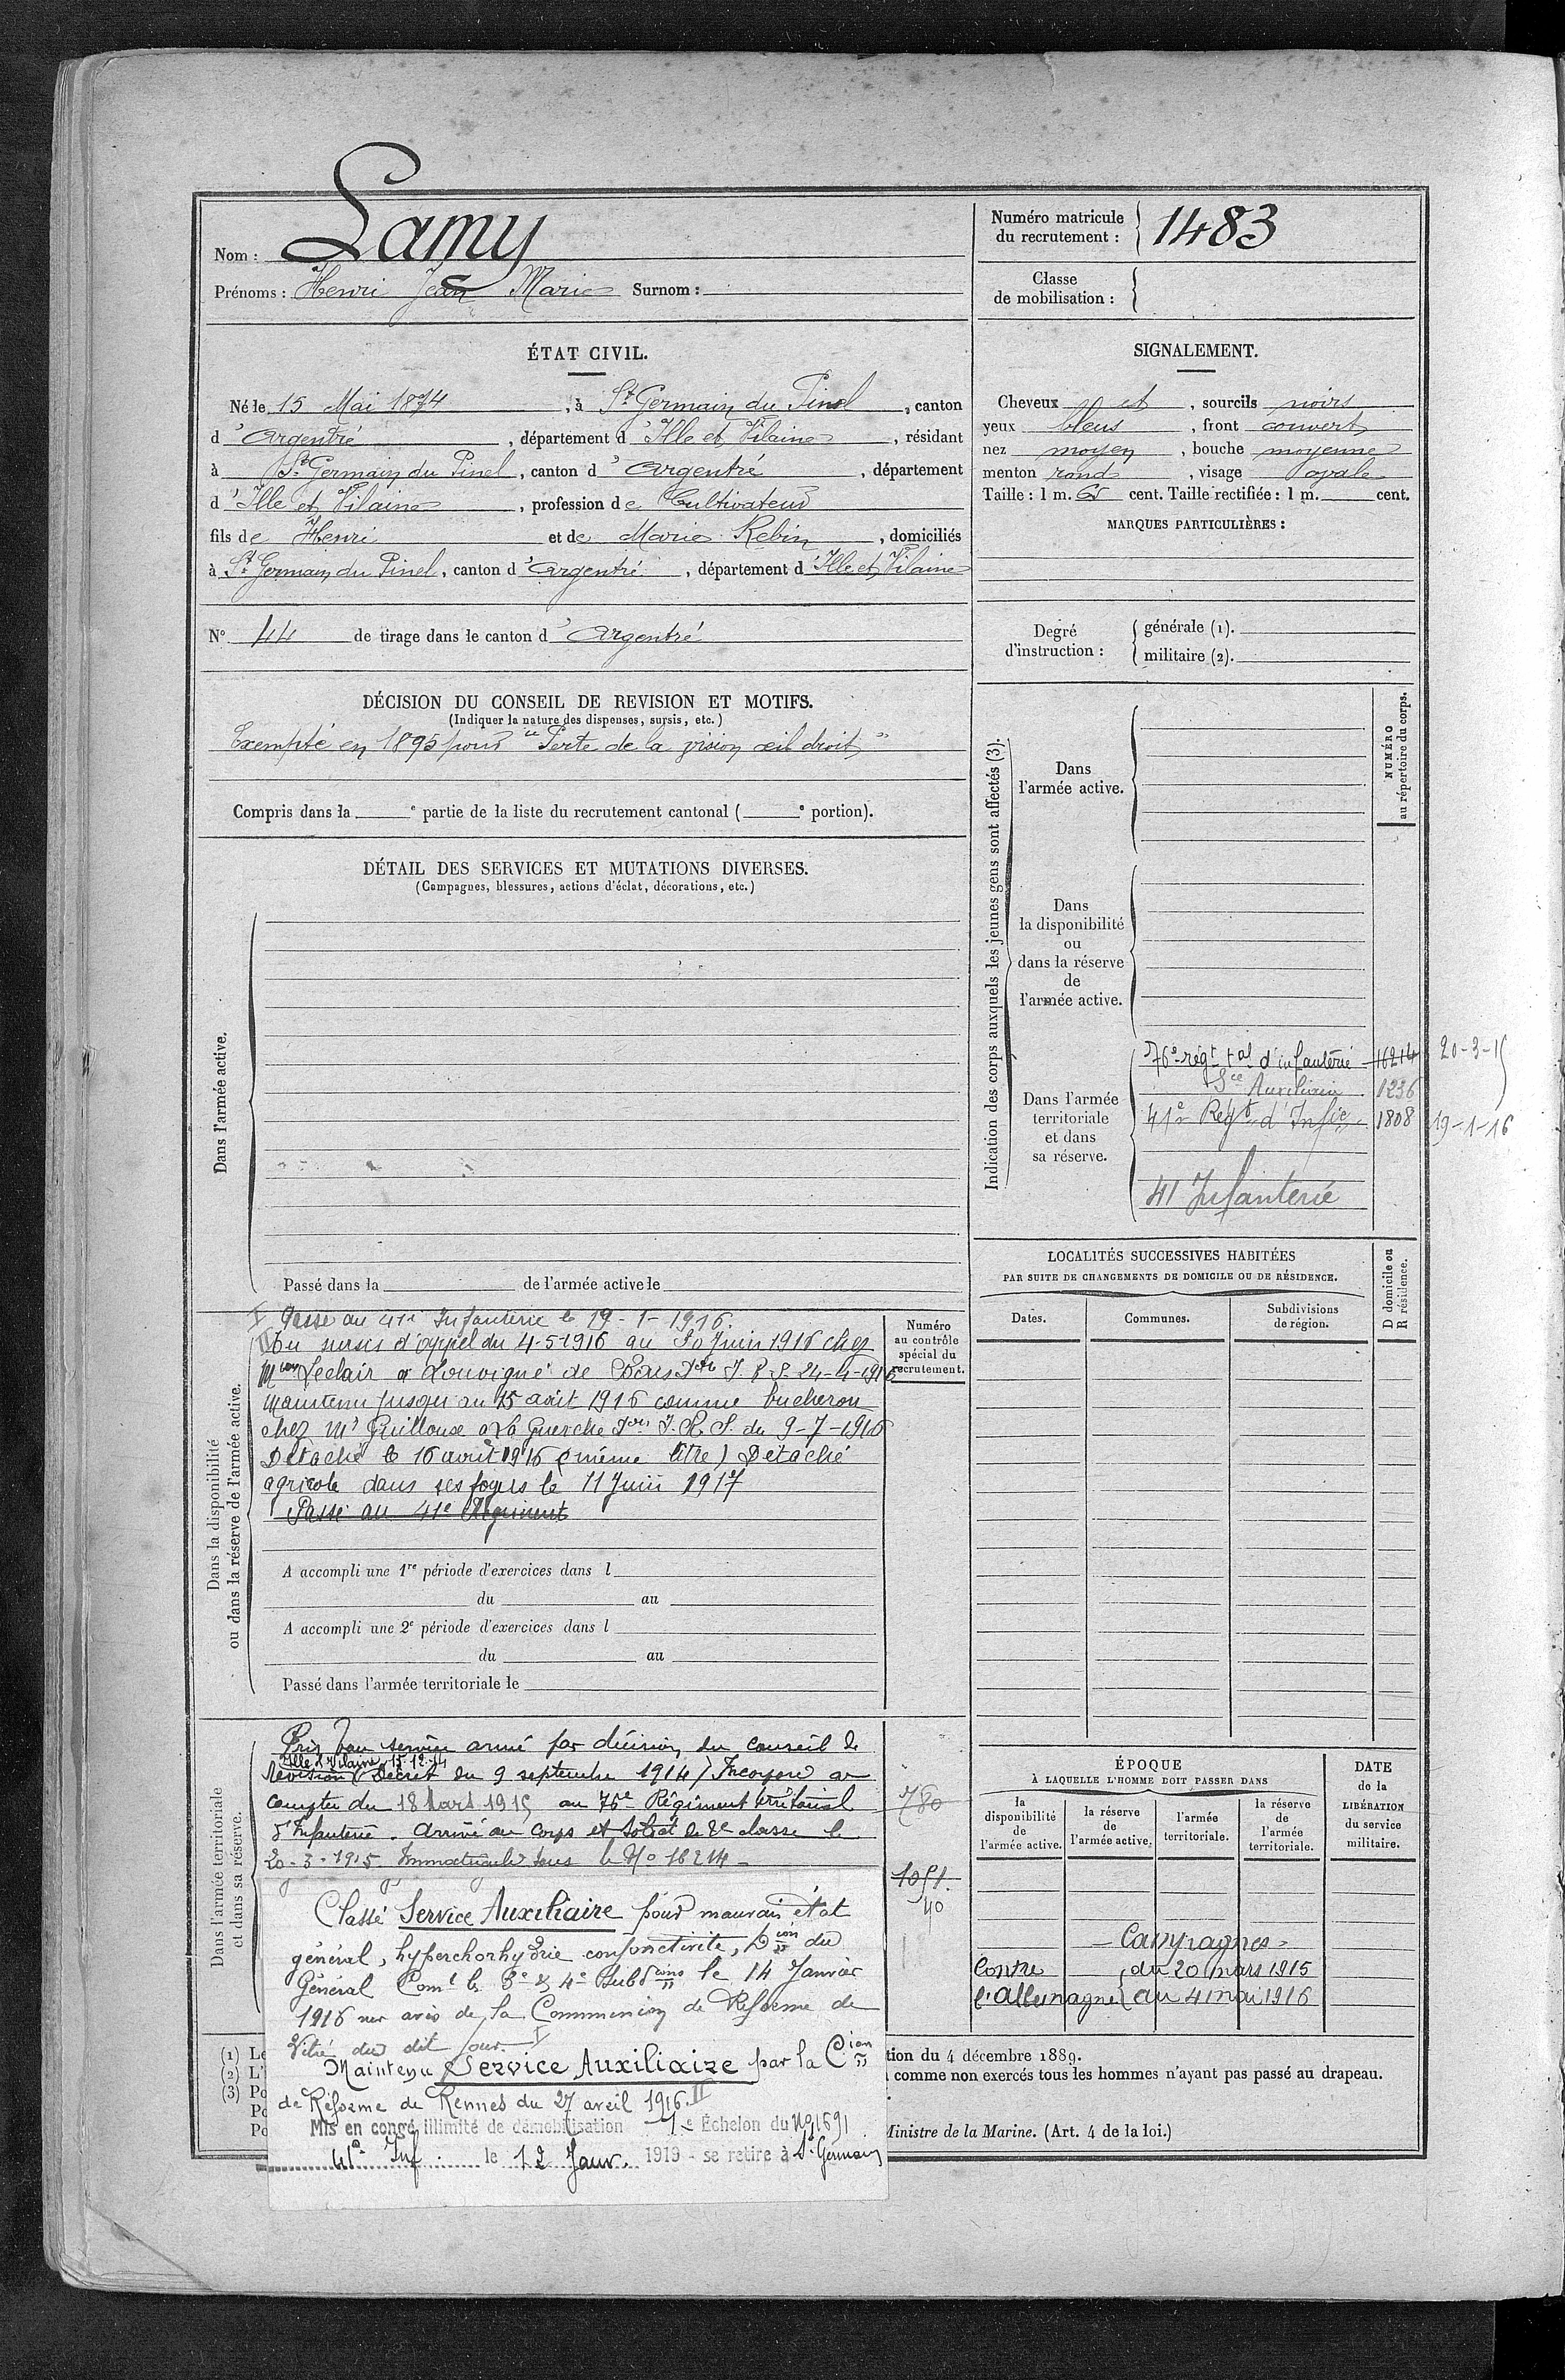 Nom : Lamy
Prénoms : Henri Jean Marie Surnom :
Numéro matricule
du recrutement : 1483
Classe
de mobilisation :
ÉTAT CIVIL.
Né le 15 Mai 1874, à St Germain du Pinel, canton
d'Argentré, département d'Ille et Vilaine, résidant
à St Germain du Pinel, canton d'Argentré, département
d'Ille et Vilaine, profession de Cultivateur
fils de Henri et de Marie Rebin, domiciliés
à St Germain du Pinel, canton d'Argentré, département d'Ille et Vilaine
N° 44 de tirage dans le canton d'Argentré
SIGNALEMENT.
Cheveux et, sourcils noirs
yeux bleus, front couvert
nez moyen, bouche moyenne
menton rond, visage ovale
Taille : 1 m. 65 cent. Taille rectifiée : 1 m. cent.
MARQUES PARTICULIÈRES :
Degré
d'instruction :
générale (1).
militaire (2).
DÉCISION DU CONSEIL DE REVISION ET MOTIFS.
(Indiquer la nature des dispenses, sursis, etc.)
Exempté en 1895 pour "Perte de la vision œil droit"
Compris dans la e partie de la liste du recrutement cantonal ( e portion).
DÉTAIL DES SERVICES ET MUTATIONS DIVERSES.
(Campagnes, blessures, actions d'éclat, décorations, etc.)
Dans l'armée active.
Passé dans la de l'armée active le
Indication des corps auxquels les jeunes gens sont affectés (3).
NUMÉRO
au répertoire du corps.
Dans
l'armée active.
Dans
la disponibilité
ou
dans la réserve
de
l'armée active.
Dans l'armée
territoriale
et dans
sa réserve.
76e régt tal d'infanterie 16214 20-3-15
Sce Auxiliaire 1236
41e Regt d'Infie 1808 19-1-16
41 Infanterie
Dans la disponibilité
ou dans la réserve de l'armée active.
I Passé au 41e Infanterie le 19-1-1916.
II En sursis d'appel du 4-5-1916 au 30 Juin 1916 chez
Mon Leclair à Louvigné de Bais Don 24-4-1916
Maintenu jusqu'au 15 août 1916 comme bucheron
chez Mr Guilloux à La Guerche du 9-7-1916
Détaché le 16 août 1916 (même titre) Détaché
agricole dans ses foyers le 11 Juin 1917
Passé au 41e Régiment
Numéro
au contrôle
spécial du
recrutement.
A accompli une 1re période d'exercices dans l
du au
A accompli une 2e période d'exercices dans l
du au
Passé dans l'armée territoriale le
LOCALITÉS SUCCESSIVES HABITÉES
PAR SUITE DE CHANGEMENTS DE DOMICILE OU DE RÉSIDENCE.
Dates. Communes. Subdivisions
de région.
D domicile ou
R résidence.
Dans l'armée territoriale
et dans sa réserve.
Pris bon service armé par décision du conseil de
Ille & Vilaine 15-12-14
revision (Décret du 9 septembre 1914) Incorporé à
compter du 18 Mars 1915 au 76e Régiment territorial
d'Infanterie. Arrivé au corps et soldat de 2e classe le
20-3-1915. Immatriculé sous le No 16214
780
1051.
40
Classé Service Auxiliaire pour mauvais état
général, hyperchorhydrie conjonctivite, Don du
Général Comt les 3e & 4e Subdons le 14 Janvier
1916 sur avis de la Commission de Réforme de
Vitré du dit jour. I
Maintenu Service Auxiliaire par la Cion
de Réforme de Rennes du 27 avril 1916. II
Mis en congé illimité de démobilisation 1e Échelon du No 1591
41e Inf. le 12 Janv. 1919 - se retire à St Germain
ÉPOQUE
À LAQUELLE L'HOMME DOIT PASSER DANS
la
disponibilité
de
l'armée active.
la réserve
de
l'armée active.
l'armée
territoriale.
la réserve
de
l'armée
territoriale.
DATE
de la
LIBÉRATION
du service
militaire.
Campagnes
Contre du 20 mars 1915
l'Allemagne au 4 mai 1916
(1) Le
(2) L'
(3) Po
Po
Po
tion du 4 décembre 1889.
comme non exercés tous les hommes n'ayant pas passé au drapeau.
Ministre de la Marine. (Art. 4 de la loi.)